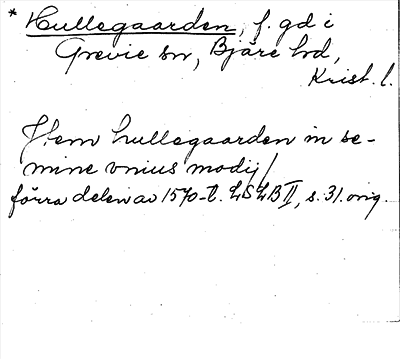 * Hullegaarden, f. gd i
Grevie sn, Bjäre hd,
Krist. l.
Jtem hullegaarden in se-
mine vnius modij/
förra delen av 1570-t. LSLB II, s. 31. orig.